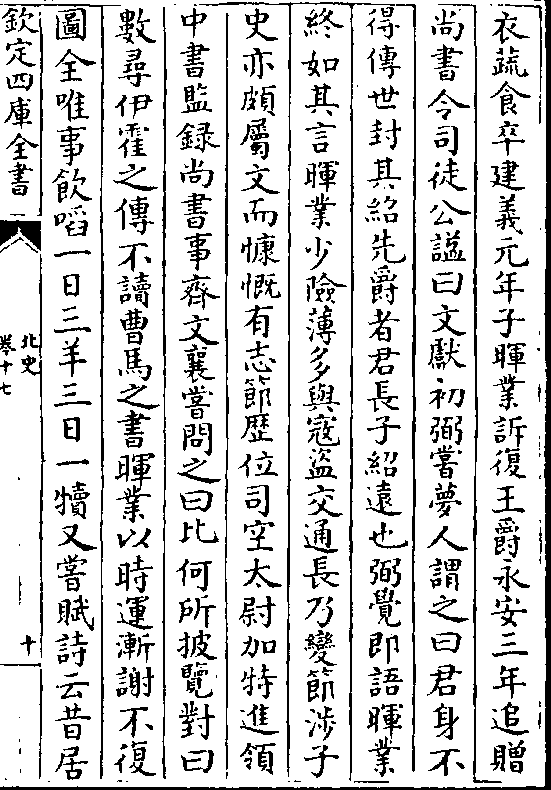 衣蔬食卒建義元年子暉業訴復王爵永安三年追贈
尚書令司徒公謚曰文獻初弼嘗夢人謂之曰君身不
得傳世封其紹先爵者君長子紹遠也弼覺即語暉業
終如其言暉業少險薄多與寇盜交通長乃變節涉子
史亦頗屬文而慷慨有志節歴位司空太尉加特進領
中書監録尚書事齊文襄嘗問之曰比何所披覽對曰
數尋伊霍之傳不讀曹馬之書暉業以時運漸謝不復
圖全唯事飲啗一日三羊三日一犢又嘗賦詩云昔居
欽定四庫全書
北史
卷十七
十